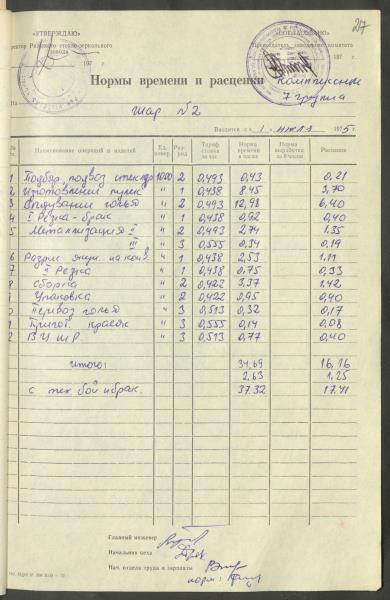 217
«УТВЕРЖДАЮ»
«СОГЛАСОВАНО»
ректор стекло-зеркального
завода
Председатель заводского комитета
197 г.
197 г.
Нормы времени и расценки комплексные
7 группа
На шар №2
Вводится с « 1 » июля 1975 г.
Наименование операций и изделий Ед. измер. Раз-ряд Тариф. ставка за час Норма времени в часах Норма выработки за 8 часов Расценка
1 Подбор, подвоз 1000 2 0,493 0,43 0,21
2 Изготовлени пулек " 1 0,438 8.45 3,70
3 " 2 0,493 12,98 6,40
4 I Резка-брак " 1 0,438 0,92 0,40
5 Металлизация II " 2 0,493 2.74 1.35
III " 3 0,555 0.34 0,19
6 " 1 0,438 2.53 1.11
7 II Резка " 1 0,438 0.75 0,33
8 Сборка " 2 0,422 3.37 1,42
9 Упаковка " 2 0,422 0,95 0,40
0 Перевоз " 3 0,513 0,32 0,17
1 Пригот. красок " 3 0,555 0,14 0,08
2 " 3 0,513 0.77 0,40
Итого: 34,69 16,16
2,63 1.25
с тех бой и брак. 37.32 17.41
Главный инженер
Начальник цеха
Нач. отдела труда и зарплаты
норм.: